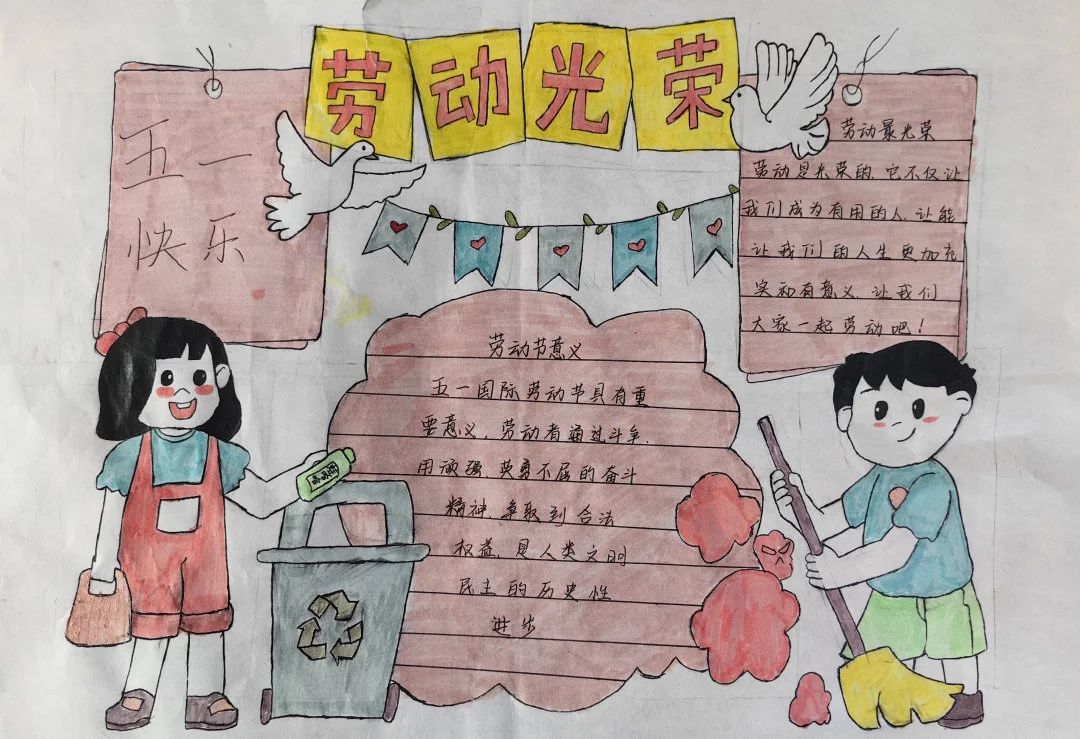 劳动光荣
五一
快乐
劳动最光荣
劳动是光荣的,它不仅让
我们成为有用的人,让能
让我们的人生更加充
实和有意义,让我们
大家一起劳动吧!
劳动节意义
五一国际劳动节具有重
要意义,劳动者通过斗争,
用顽强,英勇不屈的奋斗
精神,争取到合法
权益,是人类文明
民主的历史性
进步